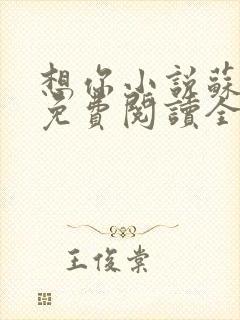 想你小說蘇
免費閱讀全
王俊棠